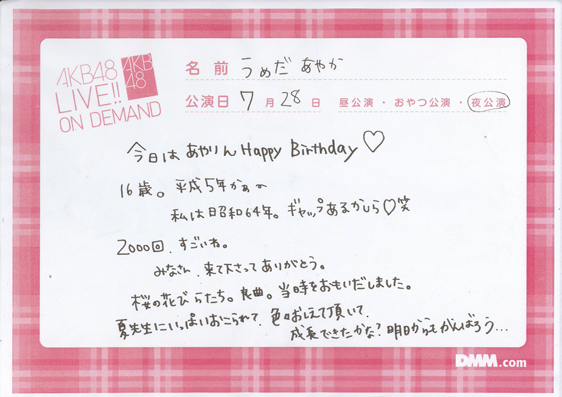 AKB48
LIVE!!
ON DEMAND
AKB
48
名前 うめだ あやか
公演日 7月28日 昼公演・おやつ公演・夜公演
今日は あやりん Happy Birthday♡
16歳。平成5年かぁ
私は昭和64年。ギャップあるかしら♡笑
2000回、すごいね。
みなさん、来て下さってありがとう。
桜の花びらたち。良曲。当時をおもいだしました。
夏先生にいっぱいおこられて、色々おしえて頂いて、
成長できたかな?明日からもがんばろう...
DMM.com